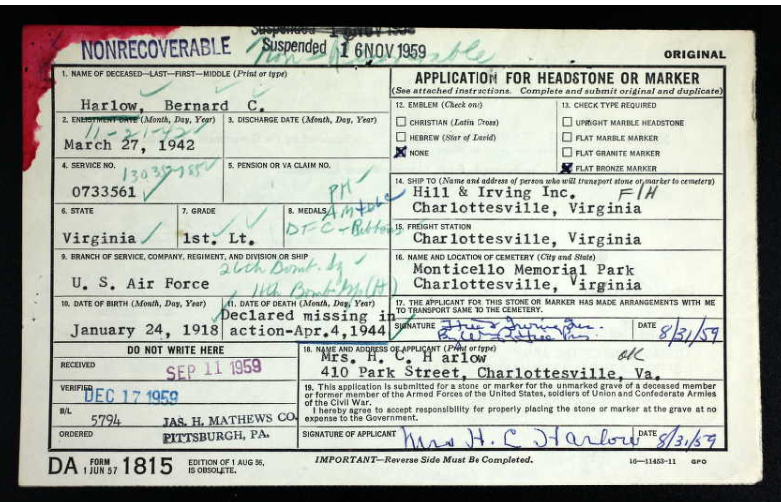 NONRECOVERABLE
Suspended 16 NOV 1959
Suspended 16 NOV 1959
ORIGINAL
1. NAME OF DECEASED—LAST—FIRST—MIDDLE (Print or type)
Harlow, Bernard C.
APPLICATION FOR HEADSTONE OR MARKER
(See attached instructions. Complete and submit original and duplicate)
2. ENLISTMENT DATE (Month, Day, Year)
11-21-42
March 27, 1942
3. DISCHARGE DATE (Month, Day, Year)
12. EMBLEM (Check one)
CHRISTIAN (Latin Cross)
HEBREW (Star of David)
NONE
13. CHECK TYPE REQUIRED
UPRIGHT MARBLE HEADSTONE
FLAT MARBLE MARKER
FLAT GRANITE MARKER
FLAT BRONZE MARKER
4. SERVICE NO.
0733561
5. PENSION OR VA CLAIM NO.
14. SHIP TO (Name and address of person who will transport stone or marker to cemetery)
Hill & Irving Inc. F/H
Charlottesville, Virginia
6. STATE
Virginia
7. GRADE
1st. Lt.
8. MEDALS
PH
DFC-Ribbons
15. FREIGHT STATION
Charlottesville, Virginia
9. BRANCH OF SERVICE, COMPANY, REGIMENT, AND DIVISION OR SHIP
26th Bomb. Sq
U. S. Air Force
11th Bomb Gp (H)
16. NAME AND LOCATION OF CEMETERY (City and State)
Monticello Memorial Park
Charlottesville, Virginia
10. DATE OF BIRTH (Month, Day, Year)
January 24, 1918
11. DATE OF DEATH (Month, Day, Year)
Declared missing in
action-Apr.4,1944
17. THE APPLICANT FOR THIS STONE OR MARKER HAS MADE ARRANGEMENTS WITH ME
TO TRANSPORT SAME TO THE CEMETERY.
SIGNATURE
DATE
8/31/59
DO NOT WRITE HERE
RECEIVED
SEP 11 1959
VERIFIED
DEC 17 1959
B/L
5794
JAS. H. MATHEWS CO.
ORDERED
PITTSBURGH, PA.
18. NAME AND ADDRESS OF APPLICANT (Print or type)
Mrs. H. C. Harlow OK
410 Park Street, Charlottesville, Va.
19. This application is submitted for a stone or marker for the unmarked grave of a deceased member
or former member of the Armed Forces of the United States, soldiers of Union and Confederate Armies
of the Civil War.
I hereby agree to accept responsibility for properly placing the stone or marker at the grave at no
expense to the Government.
SIGNATURE OF APPLICANT
Mrs H. C Harlow
DATE
8/31/59
DA FORM 1 JUN 57 1815
EDITION OF 1 AUG 56,
IS OBSOLETE.
IMPORTANT—Reverse Side Must Be Completed.
16—11453-11 GPO